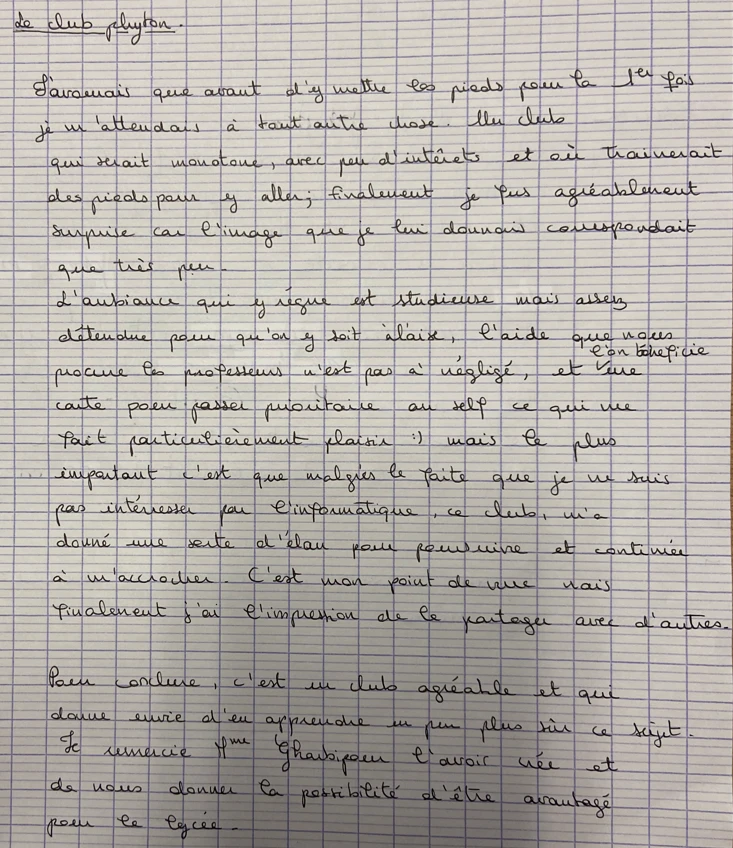 Le club phyton.
J'avouais que avant d'y mettre les pieds pour la 1er fois
je m'attendais à tout autre chose. Un club
qui serait monotone, avec peu d'intérêts et où trainerait
des pieds pour y aller; finalement je fus agréablement
surprise car l'image que je lui donnais correspondait
que très peu.
L'ambiance qui y règne est studieuse mais assez
détendue pour qu'on y soit à l'aise, l'aide que nous
procure les professeurs n'est pas à négligé, et l'on bénéficie une
carte pour passer prioritaire au self ce qui me
fait particulièrement plaisir :) mais le plus
important c'est que malgrés le faite que je ne suis
pas intéresser par l'informatique, ce club, m'a
donné une sorte d'élan pour poursuivre et continuer
à m'accrocher. C'est mon point de vue mais
finalement j'ai l'impression de le partager avec d'autres.
Pour conclure, c'est un club agréable et qui
donne envie d'en apprendre un peu plus sûr ce sujet.
Je remercie Mme Gharbi pour l'avoir crée et
de nous donner la possibilité d'être avantagé
pour le lycée.